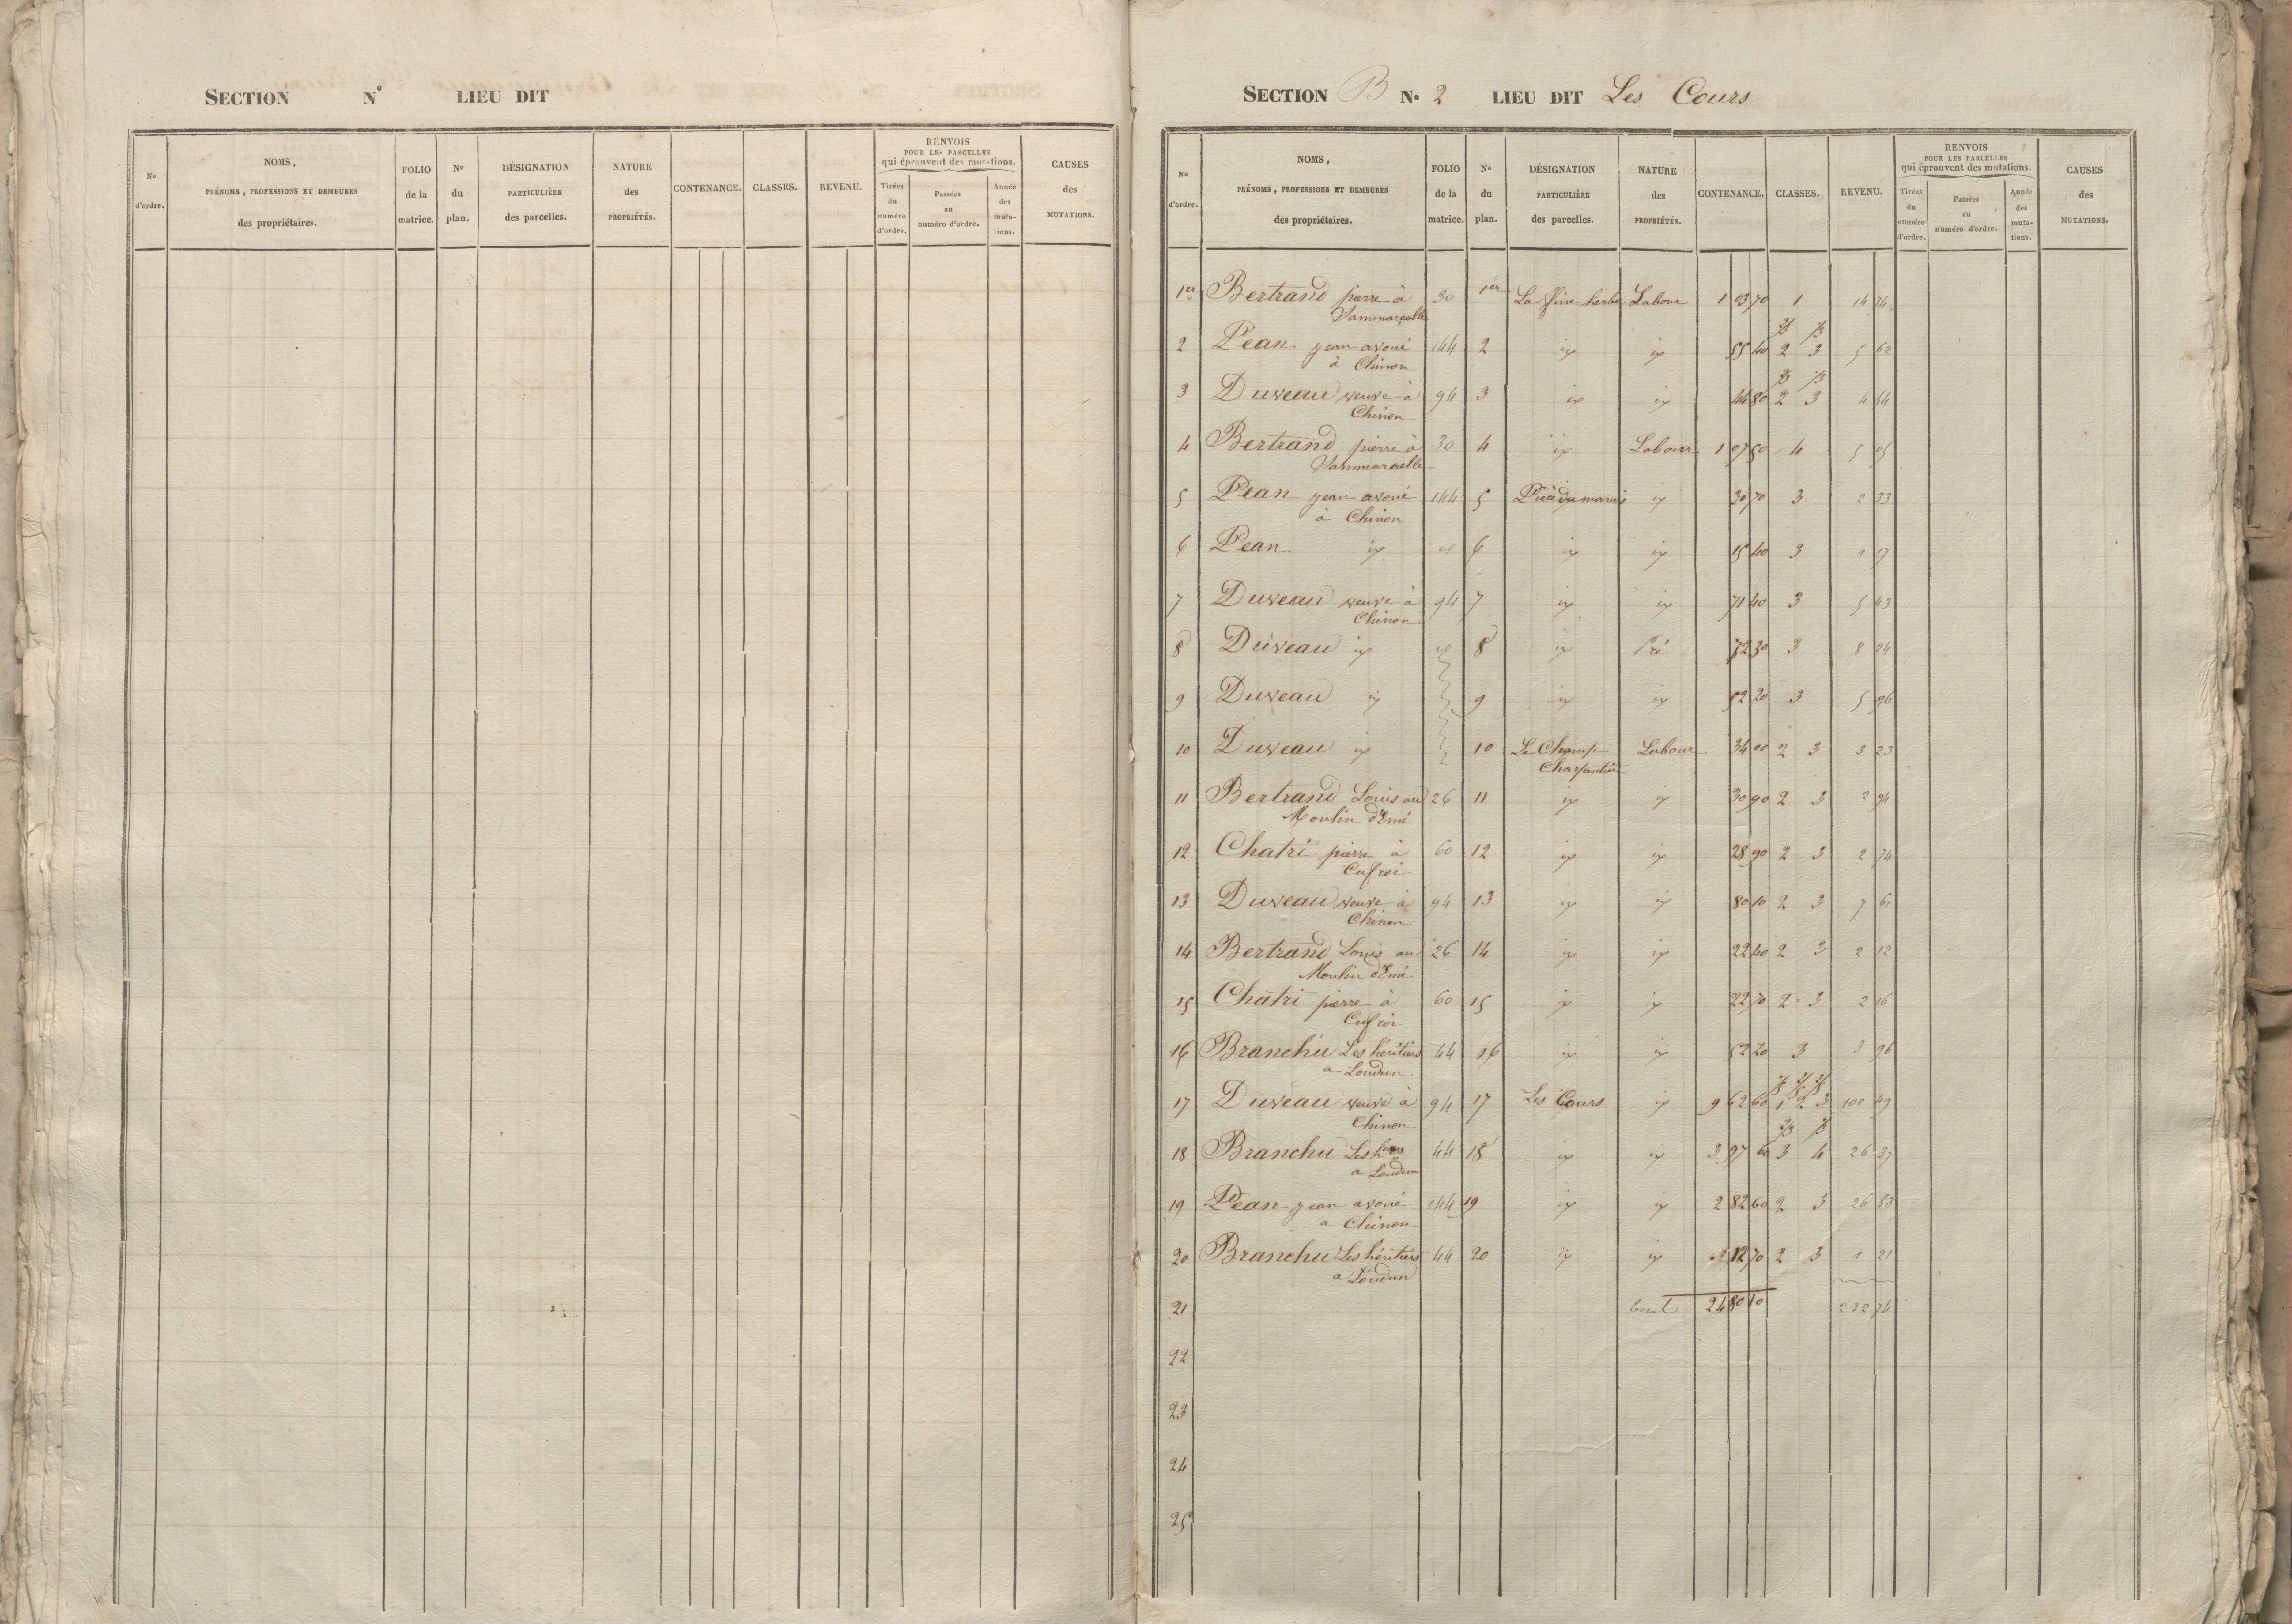 SECTION N° LIEU DIT
N° d'ordre. NOMS, PRÉNOMS, PROFESSIONS ET DEMEURES des propriétaires. FOLIO de la matrice. N° du plan. DÉSIGNATION PARTICULIÈRE des parcelles. NATURE des PROPRIÉTÉS. CONTENANCE. CLASSES. REVENU. RENVOIS POUR LES PARCELLES qui éprouvent des mutations. Tirées du numéro d'ordre. Passées au numéro d'ordre. Année des mutations. CAUSES des MUTATIONS.
SECTION B N° 2 LIEU DIT Les Cours
N° d'ordre. NOMS, PRÉNOMS, PROFESSIONS ET DEMEURES des propriétaires. FOLIO de la matrice. N° du plan. DÉSIGNATION PARTICULIÈRE des parcelles. NATURE des PROPRIÉTÉS. CONTENANCE. CLASSES. REVENU. RENVOIS POUR LES PARCELLES qui éprouvent des mutations. Tirées du numéro d'ordre. Passées au numéro d'ordre. Année des mutations. CAUSES des MUTATIONS.
1er Bertrand pierre à 30 1er La fine herbe Labour 1 03 70 1 14
Sammarcolle
2/3 1/3
2 Pean jean avoué 144 2 ip ip 55 40 2 3 5 62
à Chinon
2/3 1/3
3 Duveau veuve à 94 3 ip ip 44 80 2 3 4 54
Chinon
4 Bertrand pierre à 30 4 ip Labour 1 07 50 4 5 05
Sammarcolle
5 Pean jean avoué 144 5 du marais ip 30 70 3 2 33
à Chinon
6 Pean ip ip 6 ip ip 15 40 3 1 17
7 Duveau veuve à 94 7 ip ip 71 40 3 5 43
Chinon
8 Duveau ip ip 8 ip Pré 72 30 3 8 24
9 Duveau ip 9 ip ip 52 20 3 5 96
10 Duveau ip 10 Le Champ Labour 34 00 2 3 3 23
Charpentier
11 Bertrand Louis au 26 11 ip ip 30 90 2 3 2 94
Moulin d'Emé
12 Chatri pierre à 60 12 ip ip 28 90 2 3 2 74
Cufroi
13 Duveau veuve à 94 13 ip ip 80 10 2 3 7 61
Chinon
14 Bertrand Louis au 26 14 ip ip 22 40 2 3 2 12
Moulin d'Emé
15 Chatri pierre à 60 15 ip ip 22 70 2 3 2 16
Cufroi
16 Branchu Les héritiers 44 16 ip ip 52 20 3 3 96
a Loudun
17 Duveau veuve à 94 17 Les Cours ip 9 62 60 1 2 3 100 49
Chinon
2/3 1/3
18 Branchu Les hers 44 18 ip ip 3 97 60 3 4 26 37
a Loudun
19 Pean jean avoué 144 19 ip ip 2 82 60 2 3 26 83
a Chinon
20 Branchu Les héritiers 44 20 ip ip 12 70 2 3 1 21
a Loudun
21 24 80 10 232 74
22
23
24
25